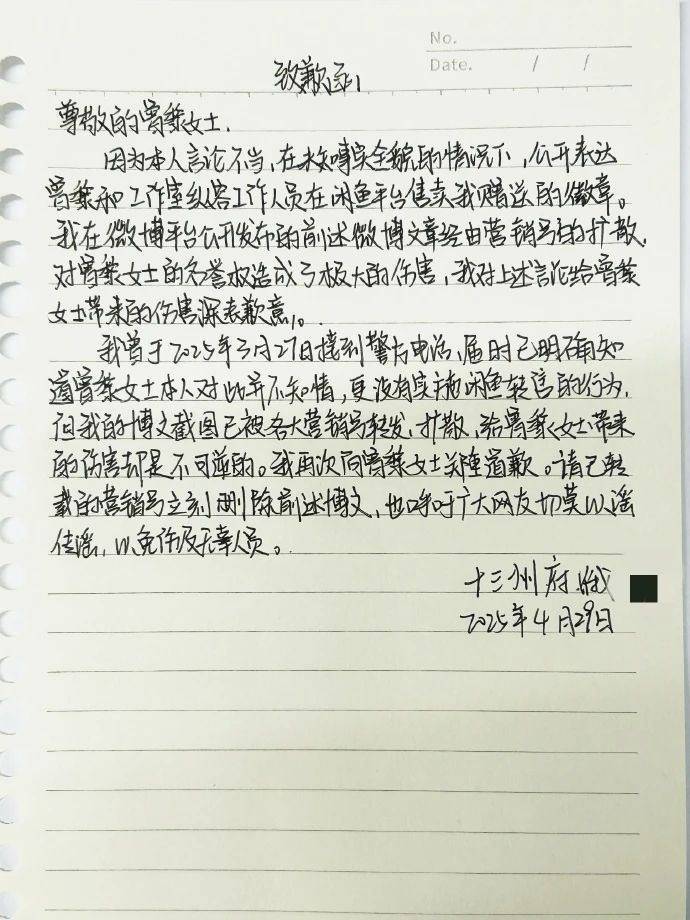 No.
Date. / /
致歉函
尊敬的曾黎女士.
因为本人言论不当,在未知事实全貌的情况下,公开表达
曾黎和工作室纵容工作人员在闲鱼平台售卖我赠送的徽章。
我在微博平台公开发布的前述微博文章经由营销号的扩散,
对曾黎女士的名誉权造成了极大的伤害,我对上述言论给曾黎
女士带来的伤害深表歉意。
我曾于2025年3月27日接到警方电话,届时已明确知
道曾黎女士本人对此并不知情,更没有实施闲鱼转售的行为,
但我的博文截图已被各大营销号转发、扩散,给曾黎女士带来
的伤害却是不可逆的。我再次向曾黎女士郑重道歉。请已转
载的营销号立刻删除前述博文,也呼吁广大网友切莫以谣
传谣,以免伤及无辜人员。
十三州府
2025年4月29日